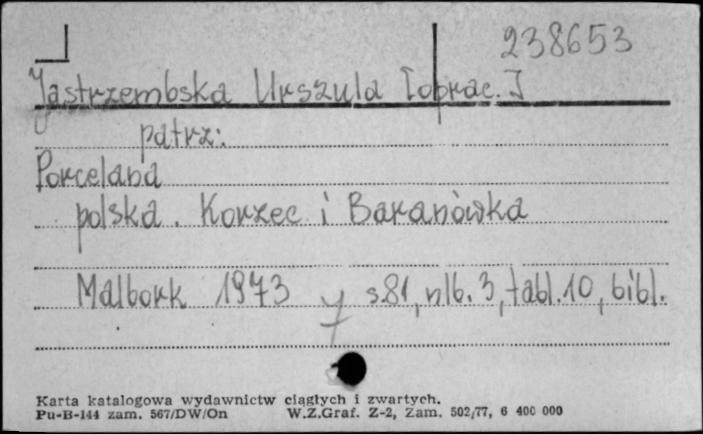 238653
Jastrzembska Urszula [oprac.]
patrz:
Porcelana
polska. Korzec i Baranówka
Malbork 1973 s.81, nlb. 3, tabl. 10, bibl.
Karta katalogowa wydawnictw ciągłych i zwartych.
Pu-B-144 zam. 567/DW/On W.Z.Graf. Z-2, Zam. 502/77, 6 400 000